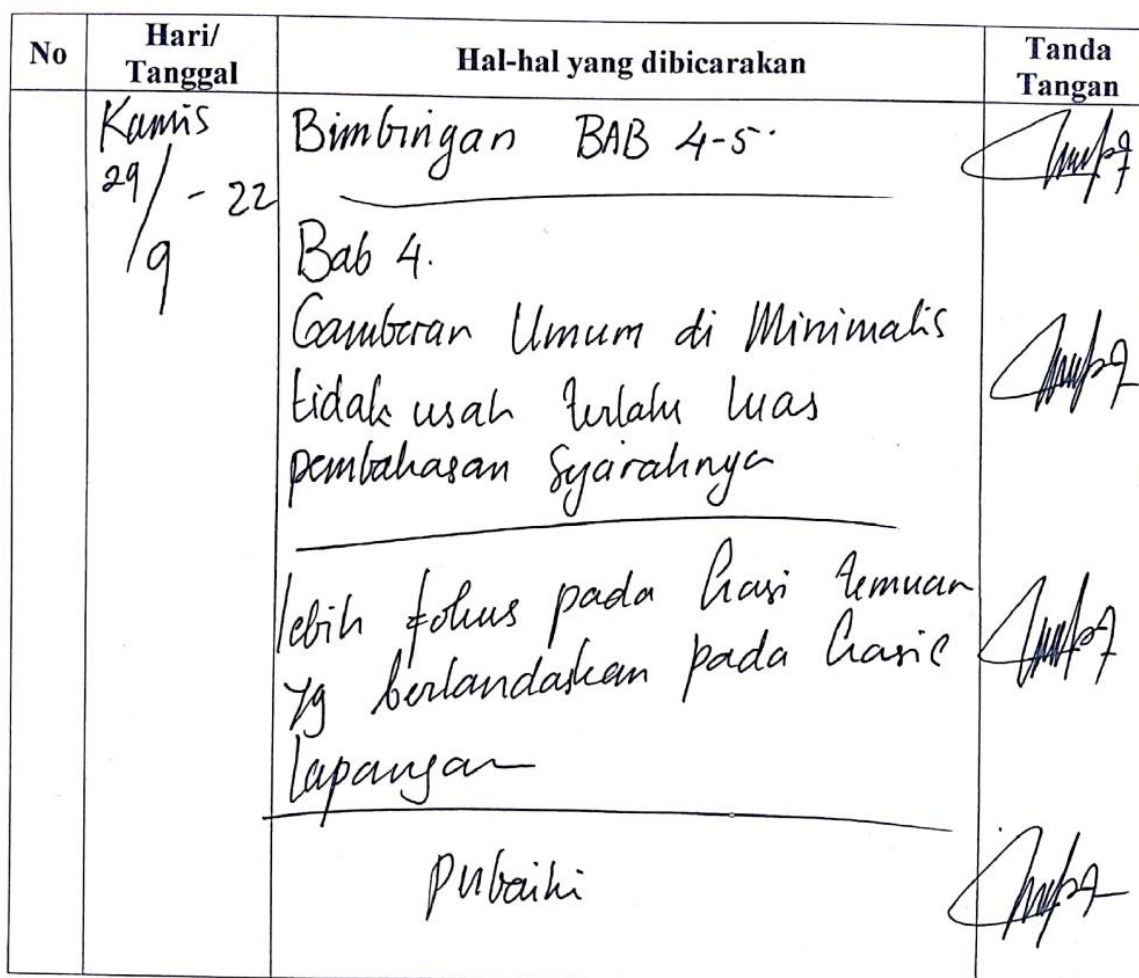 No
Hari/
Tanggal
Hal-hal yang dibicarakan
Tanda
Tangan
Kamis
29/9 - 22
Bimbingan BAB 4-5.
Bab 4.
Gambaran Umum di Minimalis
tidak usah terlalu luas
pembahasan Syarahnya
lebih fokus pada hasi temuan
yg berlandaskan pada hasil
lapangan
perbaiki